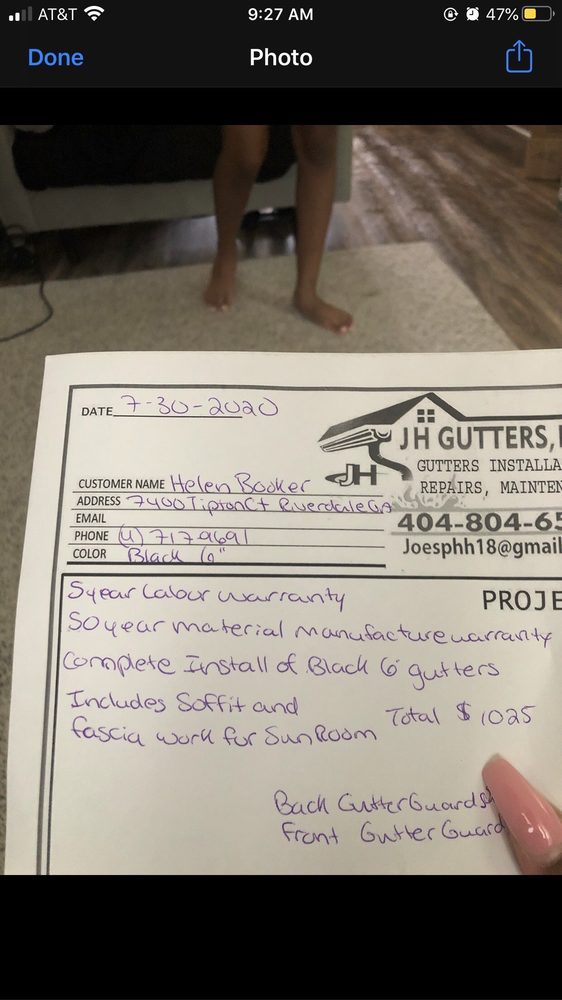 AT&T 9:27 AM 47%
Done Photo
DATE 7-30-2020
JH GUTTERS,
GUTTERS INSTALLA
REPAIRS, MAINTEN
JH
404-804-65
Joesphh18@gmail
CUSTOMER NAME Helen Booker
ADDRESS 7400 Tipton Ct Riverdale GA
EMAIL
PHONE (4) 717-9691
COLOR Black 6"
PROJE
5 year Labour warranty
50 year material manufacture warranty
Complete Install of Black 6" gutters
Includes Soffit and
fascia work for SunRoom
Total $1025
Back Gutter Guards
Front Gutter Guard